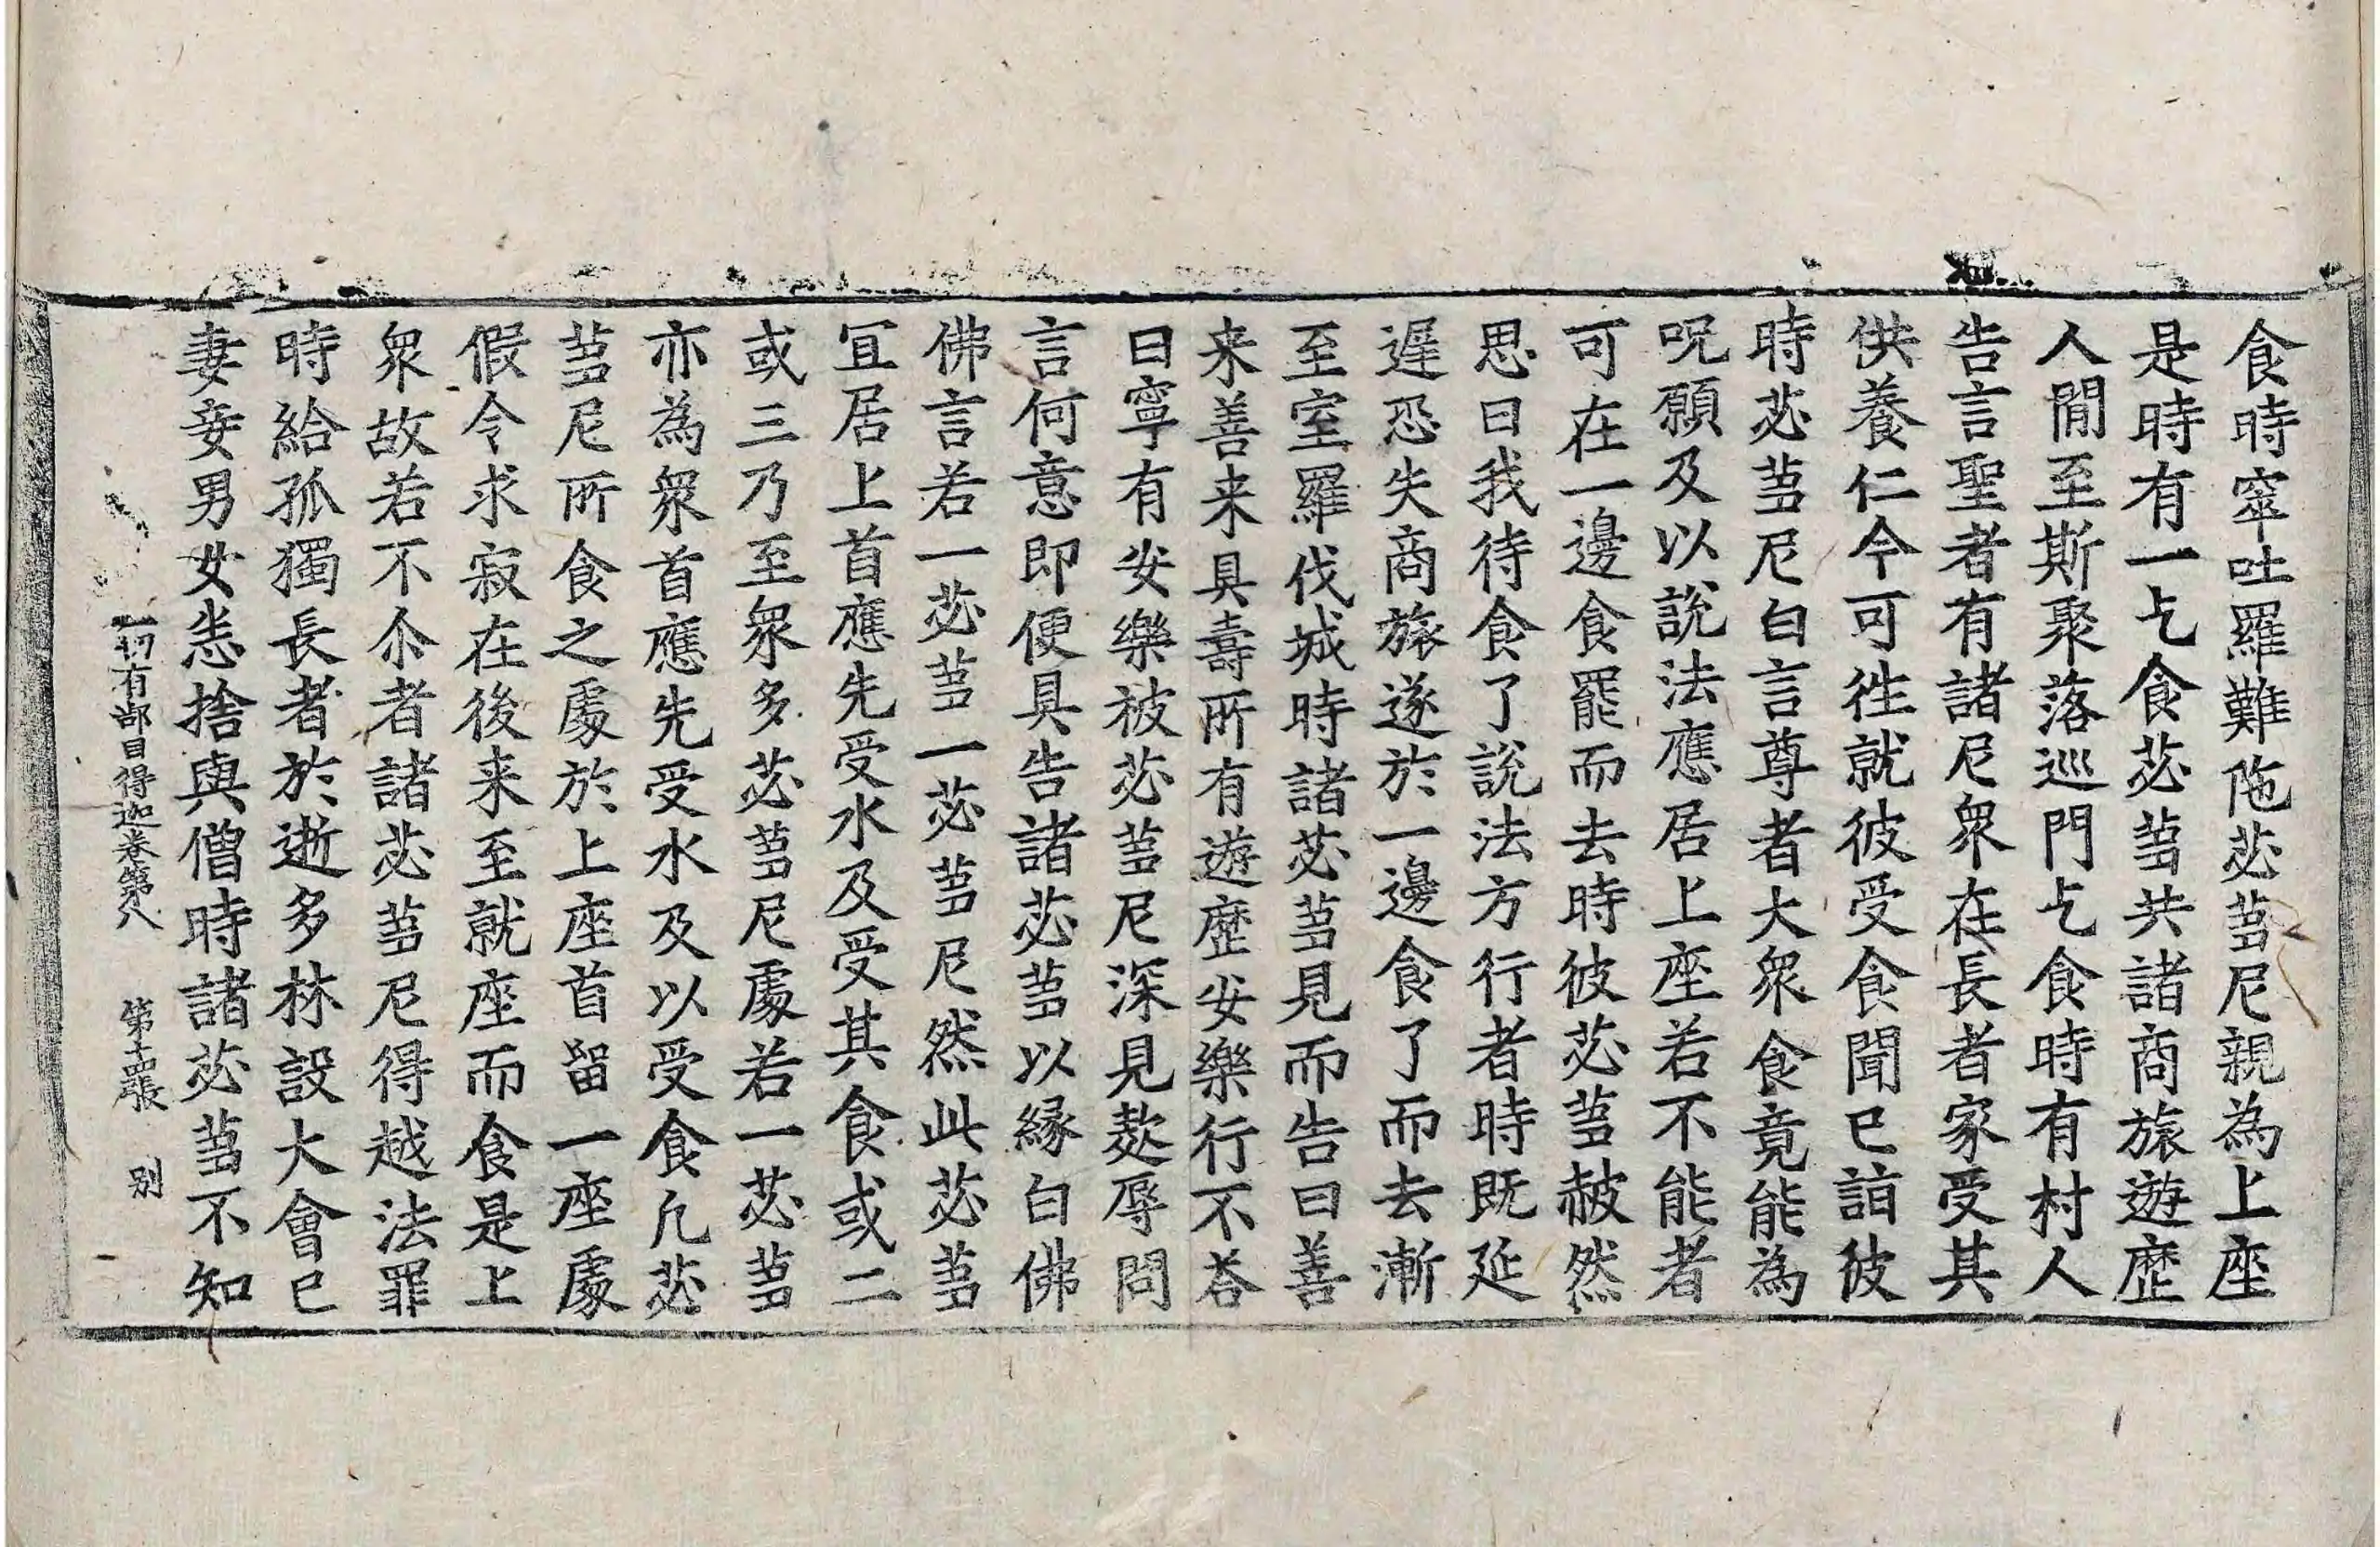 食時窣吐羅難陁苾蒭尼親為上座
是時有一乞食苾蒭共諸商旅遊歷
人閒至斯聚落巡門乞食時有村人
告言聖者有諸尼衆在長者家受其
供養仁今可往就彼受食聞已詣彼
時苾蒭尼白言尊者大衆食竟能為
呪願及以說法應居上座若不能者
可在一邊食罷而去時彼苾蒭赧然
思曰我待食了說法方行者時既延
遲恐失商旅遂於一邊食了而去漸
至室羅伐城時諸苾蒭見而告曰善
来善来具壽所有遊歷安樂行不荅
曰寧有安樂被苾蒭尼深見欺辱問
言何意即便具告諸苾蒭以縁白佛
佛言若一苾蒭一苾蒭尼然此苾蒭
冝居上首應先受水及受其食或二
或三乃至衆多苾蒭尼處若一苾蒭
亦為衆首應先受水及以受食凡苾
蒭尼所食之處於上座首留一座處
假令求寂在後来至就座而食是上
衆故若不尒者諸苾蒭尼得越法罪
時給孤獨長者於逝多林設大會已
妻妾男女悉捨與僧時諸苾蒭不知
一切有部目得迦卷第八 第十四張 别